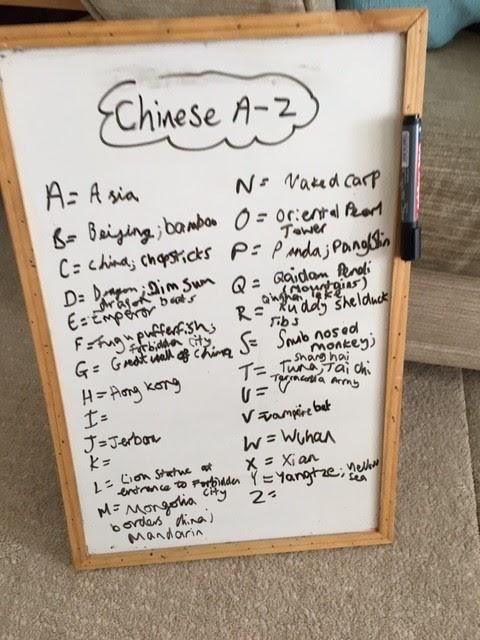 Chinese A-Z
A= Asia
B= Beijing; bamboo
C= China; chopsticks
D= Dragon; Dim Sum
dragon boats
E= Emperor
F= Fugu pufferfish;
Forbidden City
G= Great wall of China
H= Hong Kong
I=
J= Jerboa
K=
L= Lion statue at
entrance to Forbidden
City
M= Mongolia
borders China;
Mandarin
N= Naked carp
O= Oriental Pearl
Tower
P= Panda;
Q= Qaidam Pendi
(Mountains)
Qinghai lake
R= Ruddy Shelduck
Ribs
S= Snub nosed
monkey;
Shanghai
T= Tuna, Tai chi
Terracotta Army
U=
V= Vampire bat
W= Wuhan
X= Xian
Y= Yangtze; Yellow
Sea
Z=